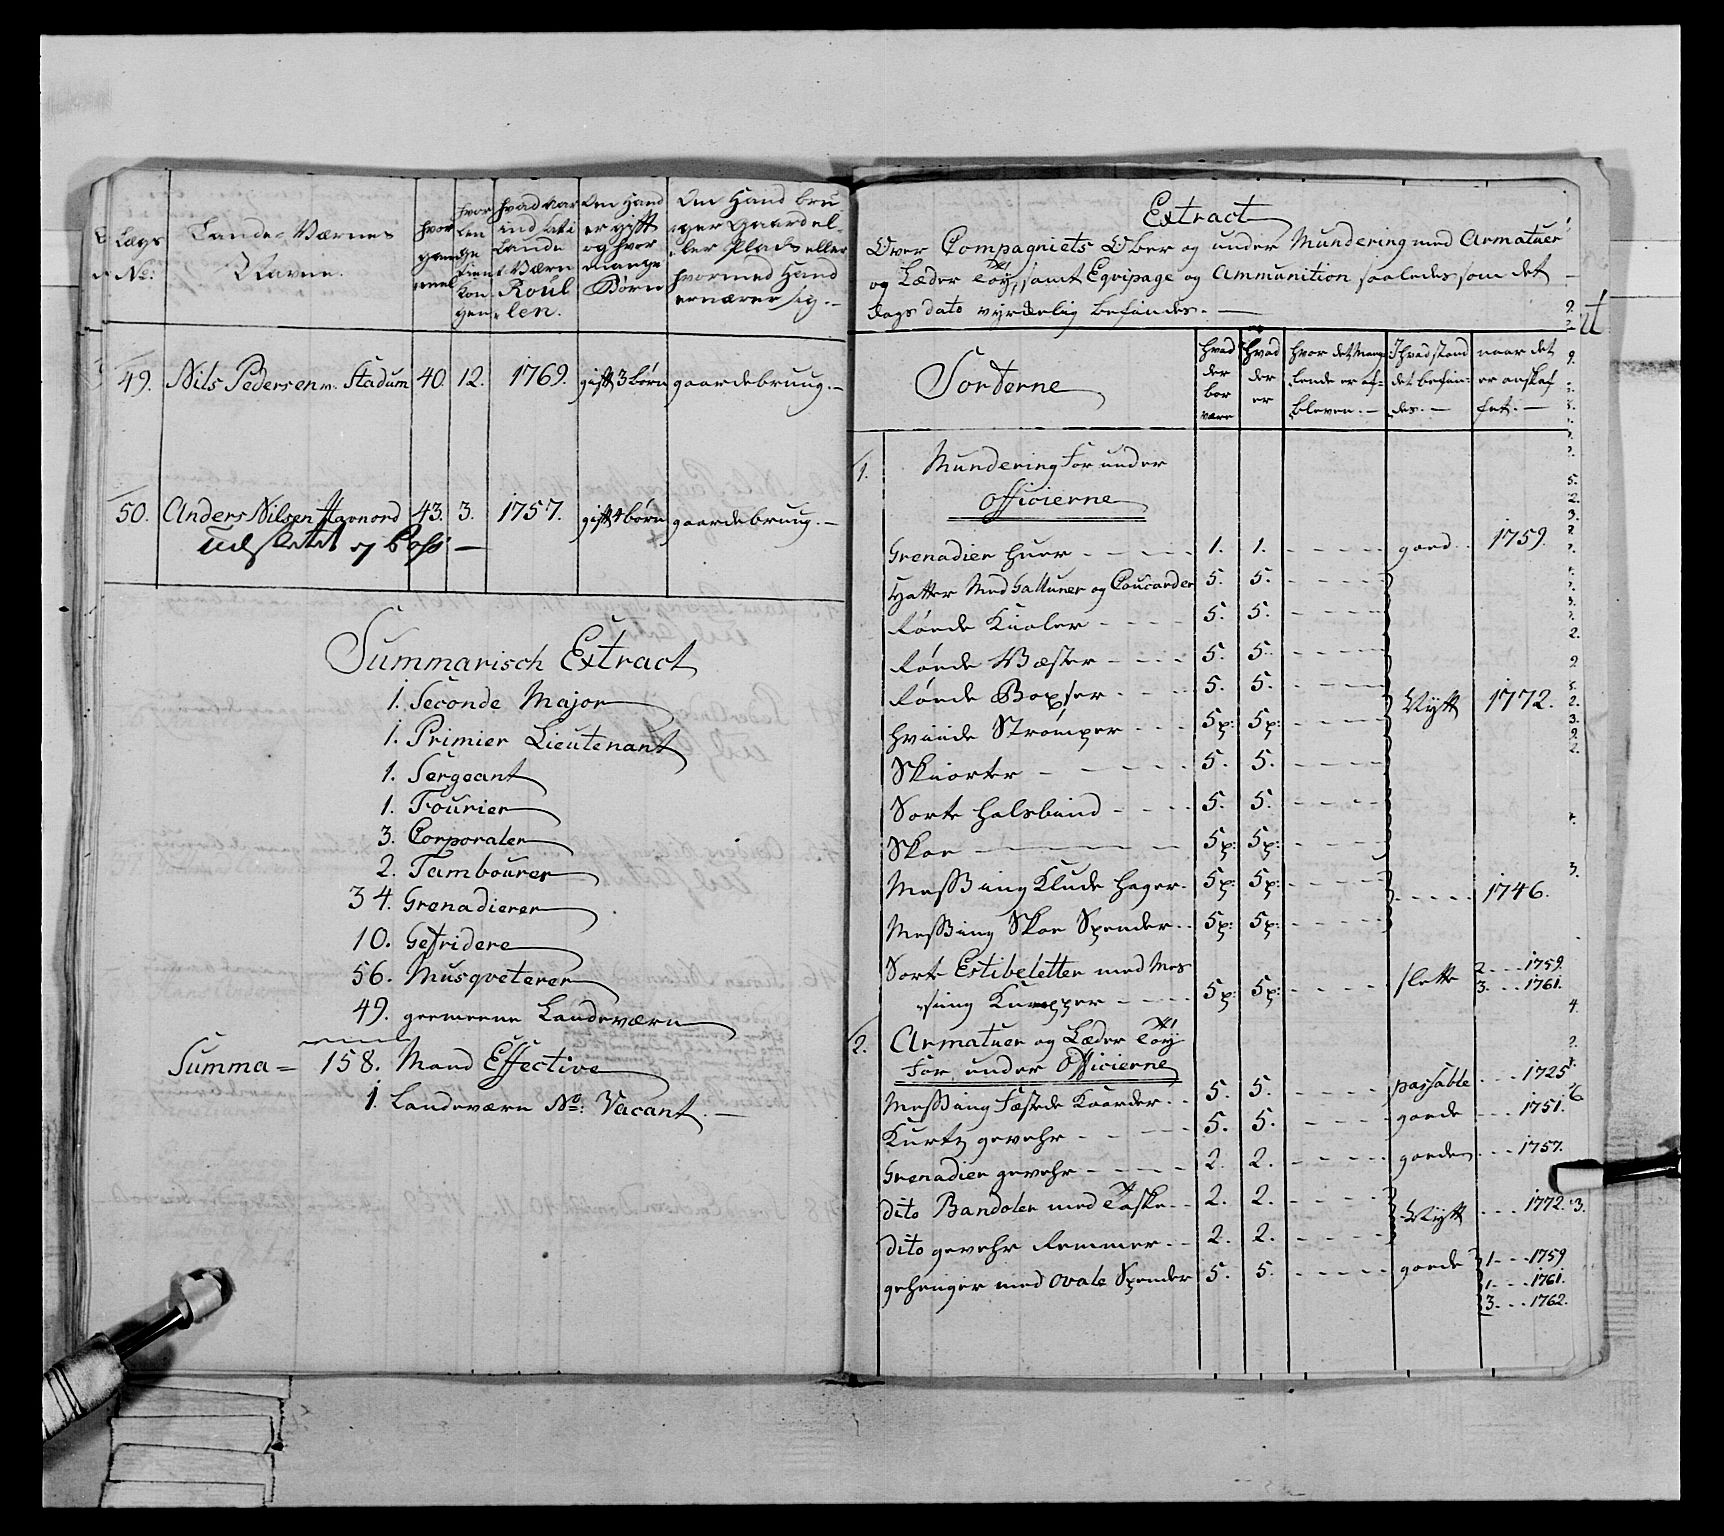 Lægs No:
Lande Værnes Navne.
hvor gammel
hvor længe tient Kongen
hvad Aar ind sat i Lande Værn Roullen.
Om Hand er gift og hvor mange Børn
Om Hand bruger Gaard eller Plads eller hvormed Hand ernærer sig.
49. Nils Pedersen Stadum 40. 12. 1769. gift 3 børn gaardebruug.
50. Anders Nilsen Havnord 43. 3. 1757. gift 4 børn gaardebruug.
udsletet og Pass
Summarisch Extract
1. Seconde Major
1. Primier Lieutenant
1. Sergeant
1. Fourier
3. Corporaler
2. Tambourer
34. Grenadierer
10. Gefridere
56. Musqveterer
49. gemeene Landeværn
Summa = 158. Mand Effective
1. Landeværn No: Vacant.
Extract
Over Compagniets Ober og under Mundering med Armatuer
og Læder Tøy, samt Eqvipage og Ammunition saaledes som det
dags dato vyrdelig befindes.
Sorterne
hvad der bør være
hvad der er
hvor det manglende er afbleven.
I hvad stand det befindes.
naar det er anskaffet.
1. Mundering for under
officierne
Grenadier huer 1. 1. goed 1759.
Hatter Med Galluner og Coucarder 5. 5.
Røede Kioler 5. 5.
Røede Wæster 5. 5.
Røede Boxser 5. 5. Nytt 1772.
Hviide Strømper 5p: 5p:
Skiorter 5. 5.
Sorte Halsbind 5. 5.
Skoe 5p: 5p:
Messing Klude Hager 5p: 5p: 1746.
Messing Skoe Spender 5p: 5p:
Sorte Estibeletter med Mes
sing Knapper 5p: 5p: slette 2 1759.
3 1761.
2. Armatuer og Læder Tøy
for under Officierne
Messing Fæstede Kaarder 5. 5. passable 1725
Kurtz gevehr 5. 5. goede 1751.
Grenadier gevehr 2. 2. goede 1757.
dito Bandoler med Taske 2. 2. Nytt 1772.
dito gevehr Remmer 2. 2.
gehenger med ovale Spender 5. 5. goede 1 1759
1 1761.
3 1762.